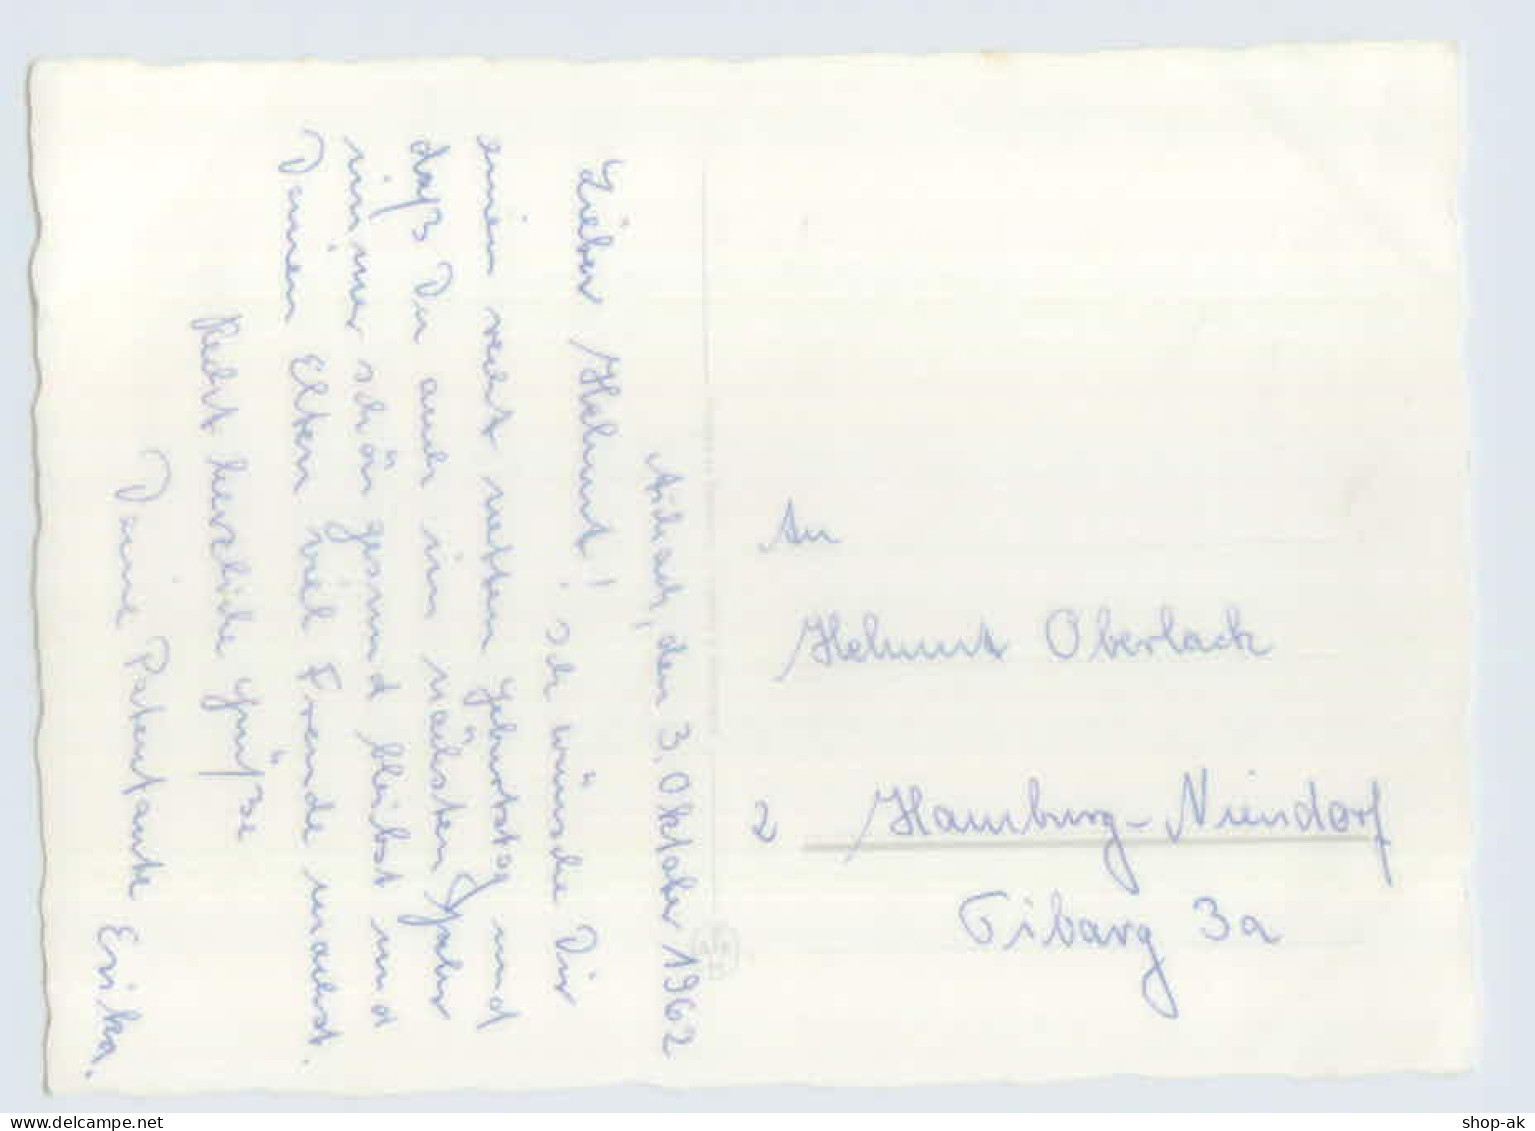 Aichach, den 3. Oktober 1962
Lieber Helmut! Ich wünsche Dir
einen recht netten Geburtstag und
daß Du auch im nächsten Jahr
immer schön gesund bleibst und
Deinen Eltern viel Freude machst.
Recht herzliche Grüße
Deine Patentante Erika.
An
Helmut Oberlack
2 Hamburg-Niendorf
Tibarg 3a
delcampe.net
shop-ak